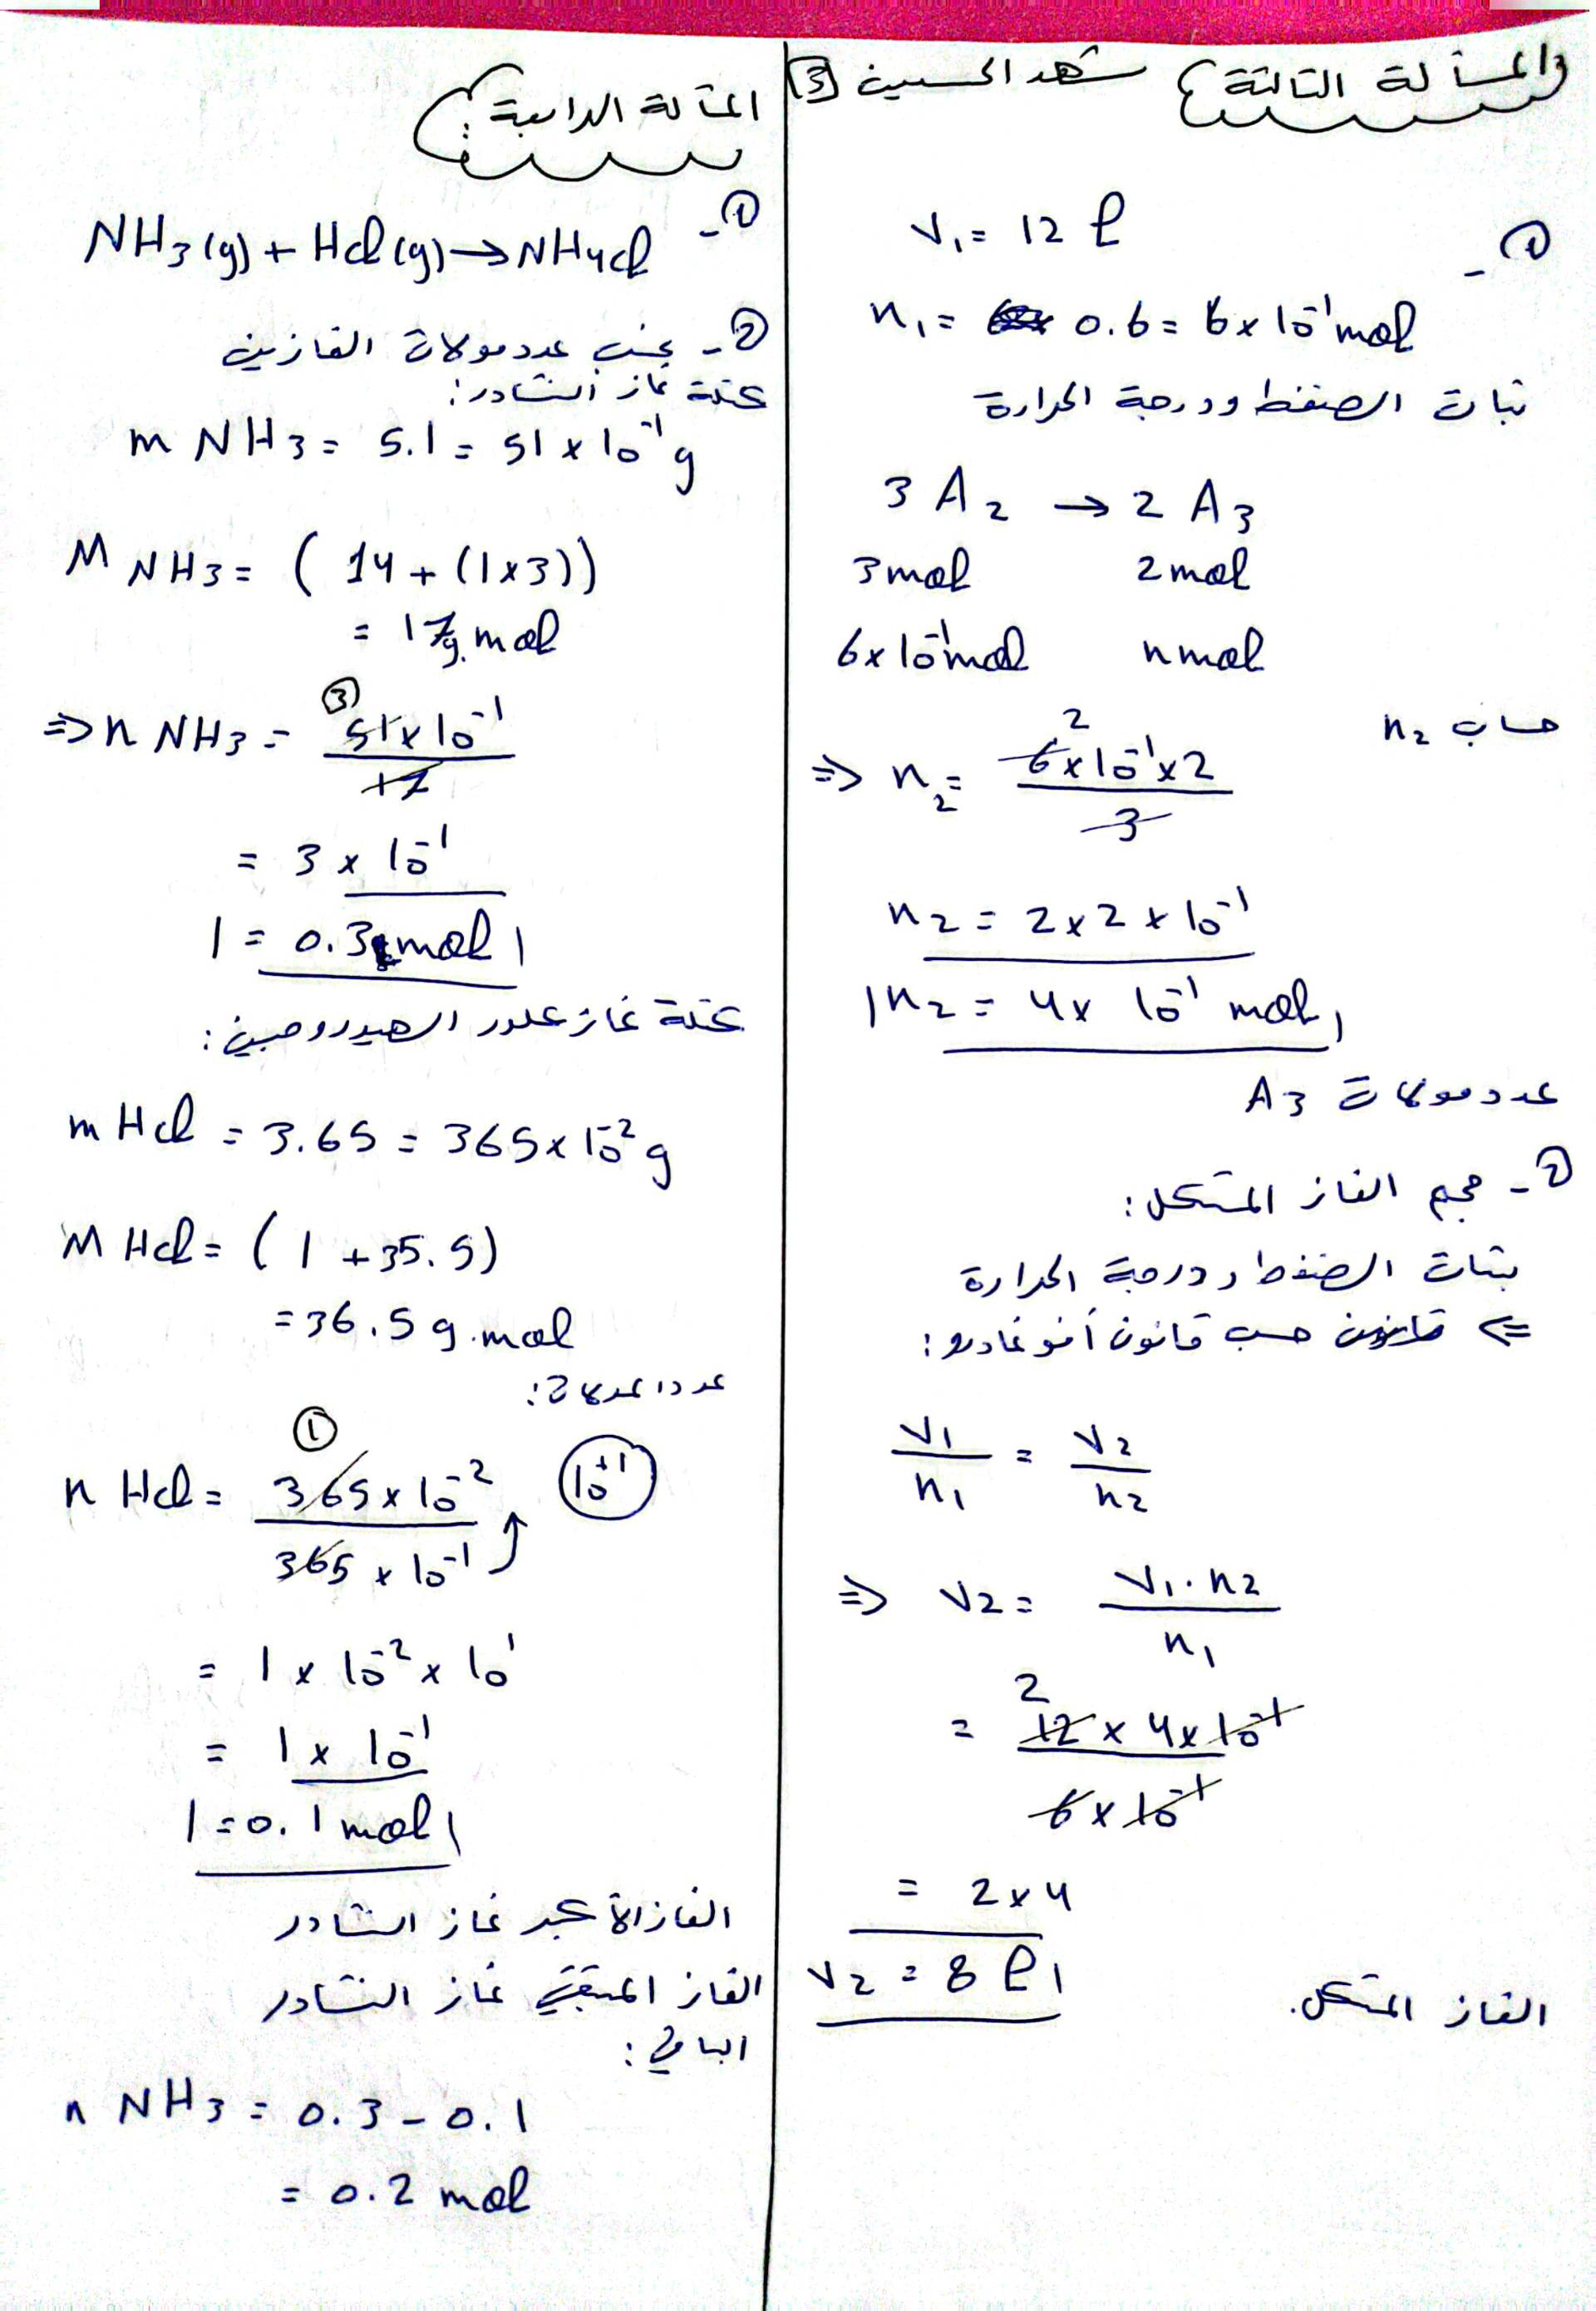 المسألة الثالثة
شهد الحسين (3)
① -
V₁ = 12 l
n₁ = 0.6 = 6 × 10⁻¹ mol
ثبات الضغط ودرجة الحرارة
3 A₂ → 2 A₃
3 mol 2 mol
6 × 10⁻¹ mol n mol
حساب n₂
⇒ n₂ = 6 × 10⁻¹ × 2 / 3
2
n₂ = 2 × 2 × 10⁻¹
n₂ = 4 × 10⁻¹ mol
عدد مولات A₃
② - حجم الغاز المتشكل:
بثبات الضغط ودرجة الحرارة
⇐ حسب قانون أفوغادرو:
V₁ / n₁ = V₂ / n₂
⇒ V₂ = V₁ . n₂ / n₁
2
= 12 × 4 × 10⁻¹ / 6 × 10⁻¹
= 2 × 4
V₂ = 8 l
الغاز المتشكل.
المسألة الرابعة:
① -
NH₃(g) + HCl(g) → NH₄Cl
② - نحسب عدد مولات الغازين
كتلة غاز النشادر:
m NH₃ = 5.1 = 51 × 10⁻¹ g
M NH₃ = (14 + (1×3))
= 17 g. mol
③
⇒ n NH₃ = 51 × 10⁻¹ / 17
= 3 × 10⁻¹
= 0.3 mol
كتلة غاز كلور الهيدروجين:
m HCl = 3.65 = 365 × 10⁻² g
M HCl = (1 + 35.5)
= 36.5 g. mol
عدد المولات:
①
n HCl = 365 × 10⁻² / 365 × 10⁻¹ 10⁺¹
= 1 × 10⁻² × 10¹
= 1 × 10⁻¹
= 0.1 mol
الغاز الأكبر غاز النشادر
الغاز المتبقي غاز النشادر
الباقي:
n NH₃ = 0.3 - 0.1
= 0.2 mol